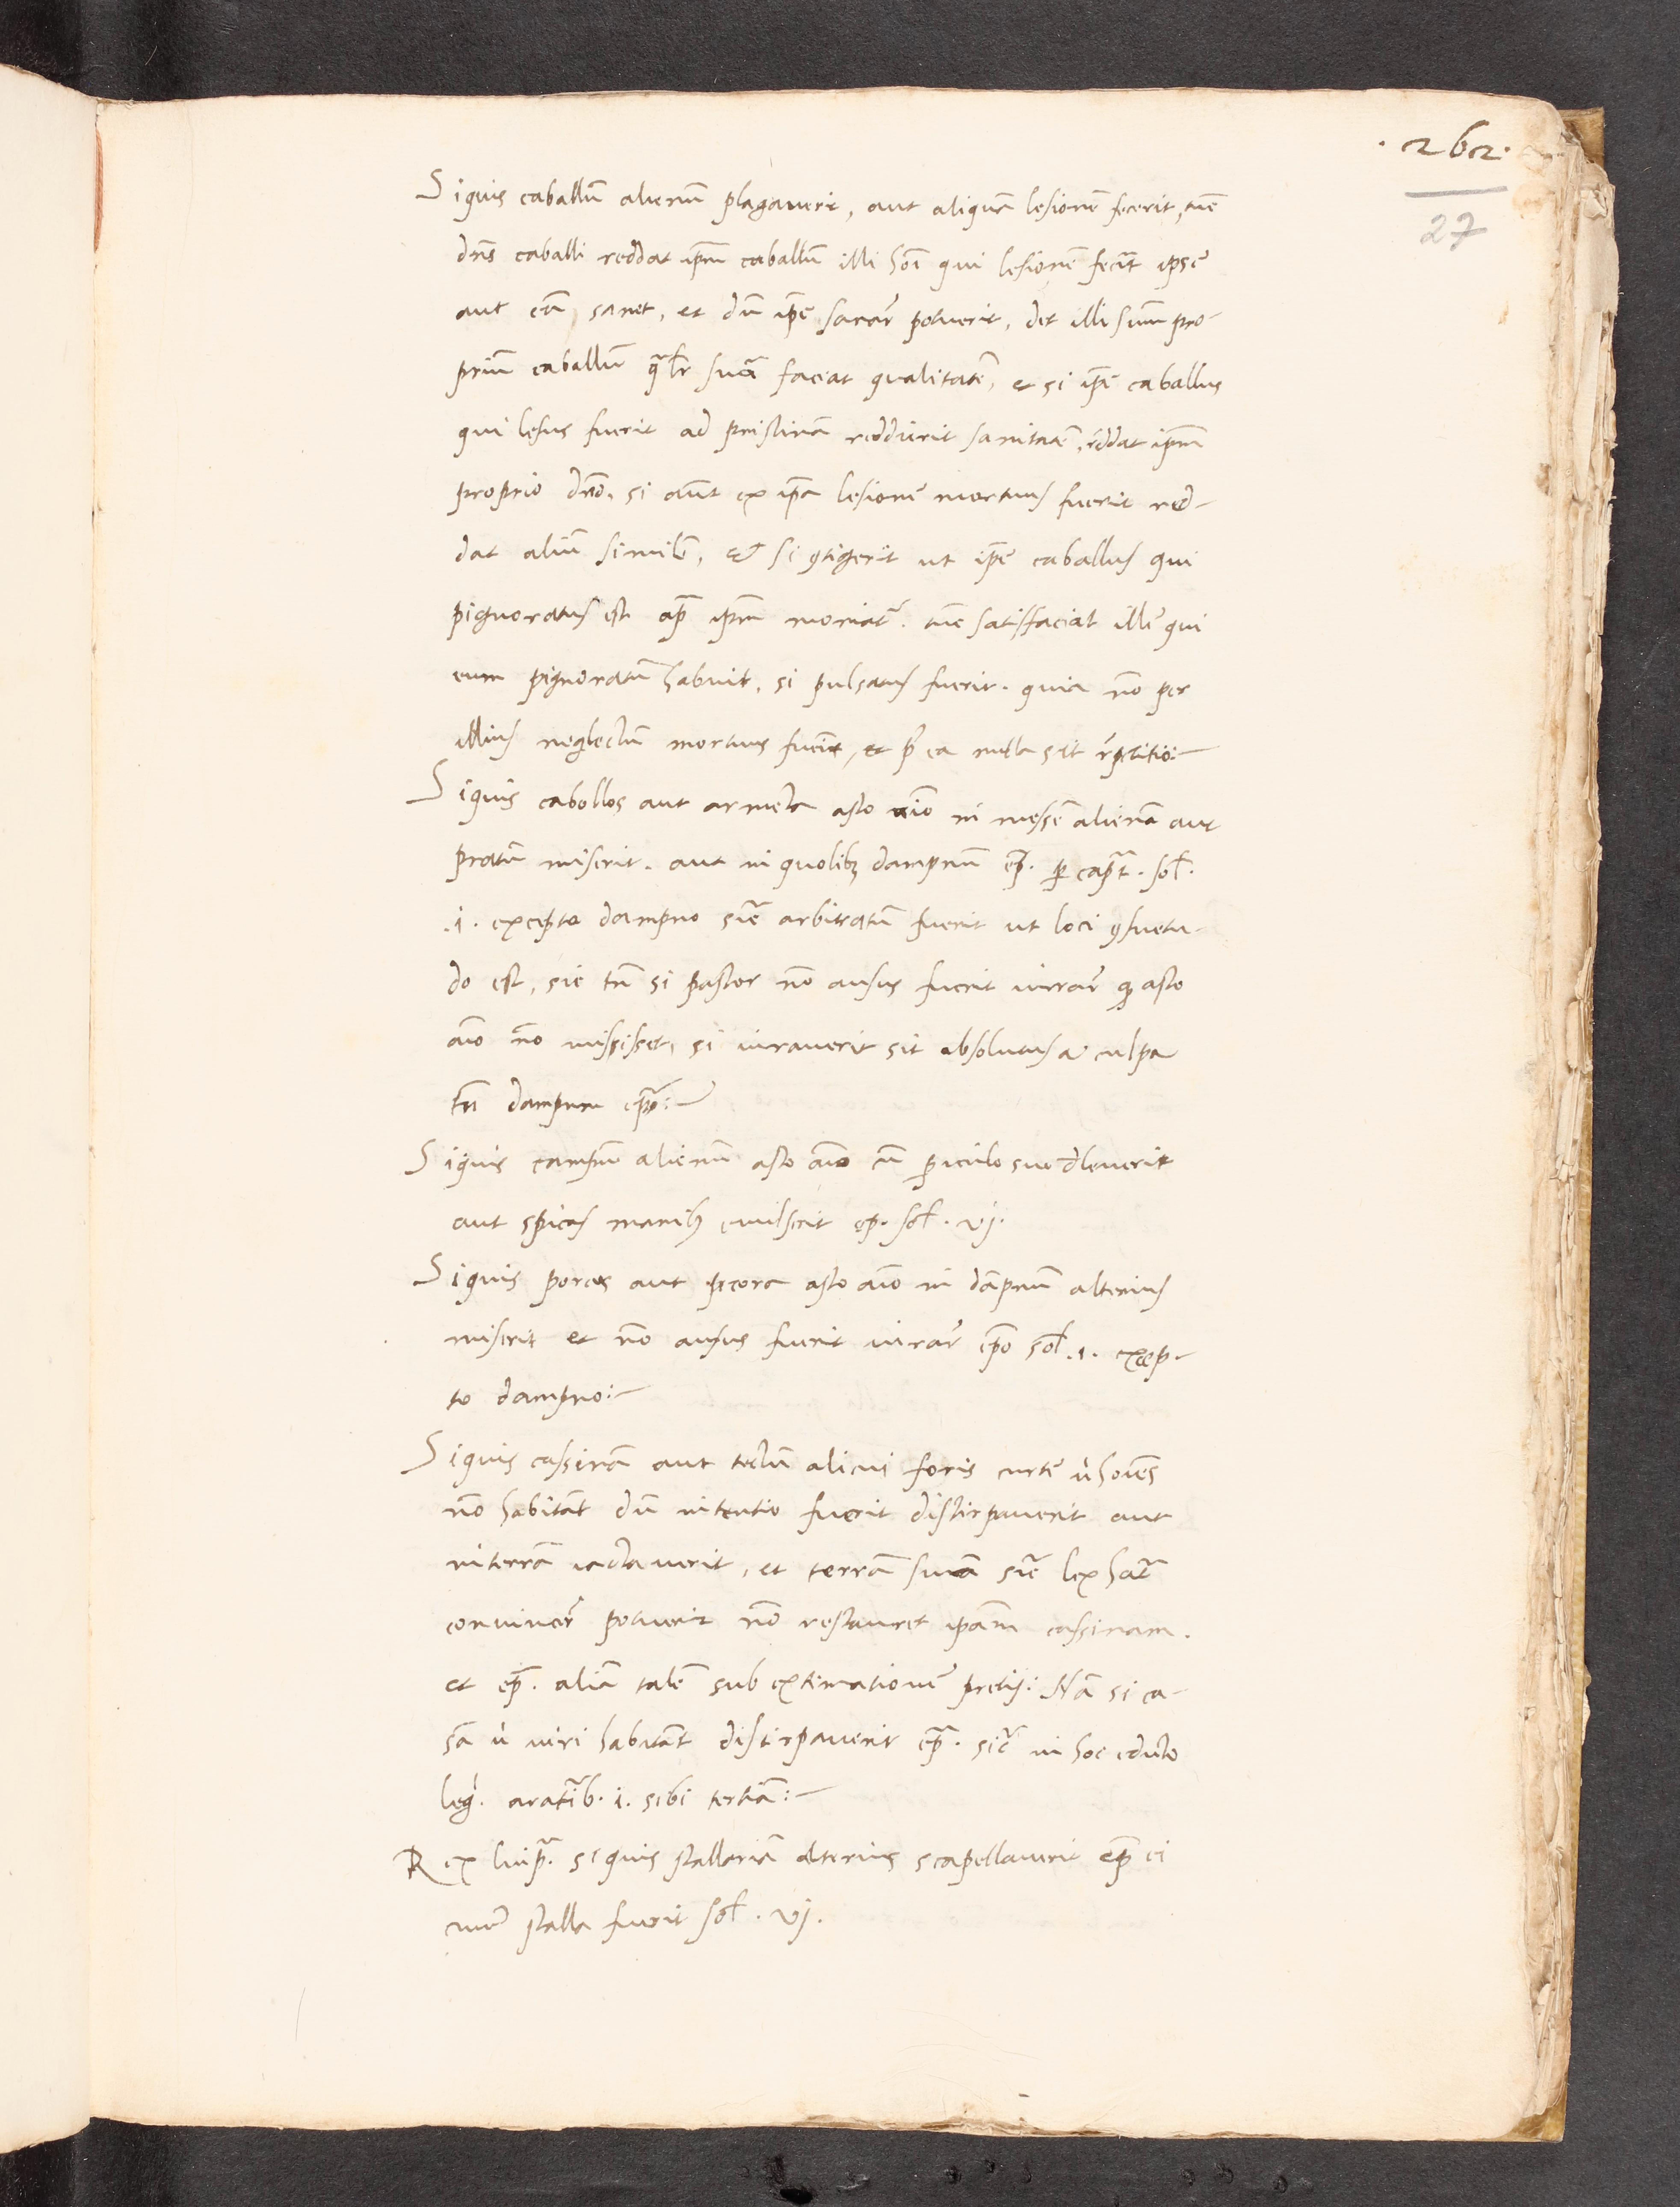 .262.
27
Siquis caballũ alienũ plagaverit, aut aliquã lesionẽ fecerit, tũc
dñs caballi reddat ip̃m caballũ illi hõi qui lesionẽ fecit ipse
aut eũ sanet, et dũ ip̃e sanar̃ potuerit, det illi suum pro-
prium caballũ q̃lr̃ suã faciat qualitatẽ, et si ip̃e caballus
qui lesus fuerit ad pristinã reddierit sanitatẽ, reddat ip̃m
proprio dño, si aũt ex ip̃a lesione mortuus fuerit red-
dat aliũ similẽ, et si ꝯtigerit ut ip̃e caballus qui
pignoratus est ap̃ ip̃m moriat̃. tũc satisfaciat ille qui
eum pignoratũ habuit, si pulsatus fuerit. quia nõ per
illius neglectum mortuus fuerit, et p̃ ea nulla sit r̃petitio:
Siquis cabollos aut armẽta asto aĩo in messẽ alienã aut
pratũ miserit. aut in quolibꝫ dampnũ cp̃. ꝑ cap̃t. sol.
.1. excepto dampno sic̃ arbitratũ fuerit ut loci ꝯsuetu-
do est, sic tñ si pastor nõ ausus fuerit iurar̃ ꝙ asto
aĩo nõ misisset, si iuraverit sit absolutus a culpa
tñ dampnum cp̃:
Siquis campũ alienũ asto aĩo cũ ꝑiculo suo deleverit
aut spicas manibꝫ evulserit cp̃. sol. vj.
Siquis porcos aut pecora asto aĩo in dãpnũ alterius
miserit et nõ ausus fuerit iurar̃ cp̃o sol .1. excep-
to dampno:
Siquis cassinã aut tectũ alicui foris curtẽ ù hoĩes
nõ habitãt dũ intentio fuerit distirpaverit aut
in terrã iactaverit, et terrã suã sic̃ lex hab̃t
convincer̃ potuerit nõ restauret ip̃am cassinam.
et cp̃. aliã talẽ sub extimationẽ pretij: Nã si ca-
sã ù viri habitãt distirpaverit cp̃. sic̃ in hoc edicto
leg̃. aratib̃. i. sibi tertiã:
Rex liutp̃. Siquis stallariã alterius scapellaverit cp̃ ei
cuius stalla fuerit sol. vj.